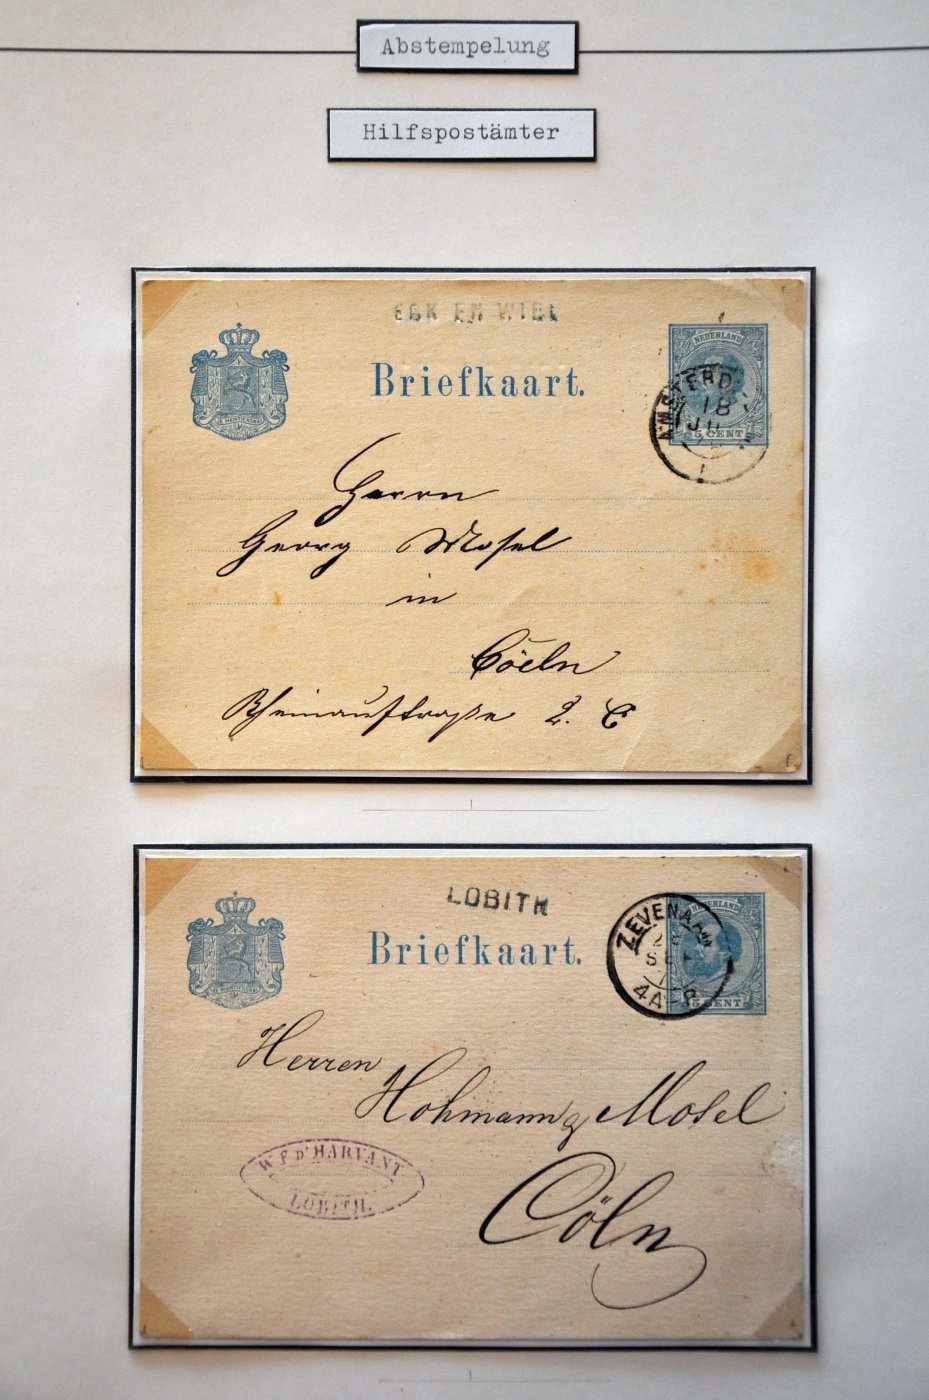 Abstempelung
Hilfspostämter
ECK EN WIEL
Briefkaart.
NEDERLAND
5 CENT
AMSTERD
18
JU
Herrn
Georg Mosel
in
Cöeln
Rheinaustraße 2. C
LOBITH
Briefkaart.
NEDERLAND
5 CENT
ZEVENA
SEP
4A-8
Herren
Hohmann & Mosel
W. F. D'HARVANT
LOBITH.
Cöln